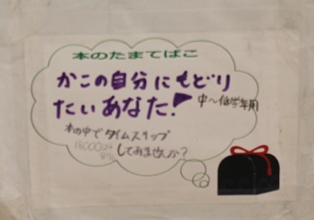 本のたまてばこ
かこの自分にもどり
たいあなた!
中～低学年用
本の中でタイムスリップ
してみませんか?